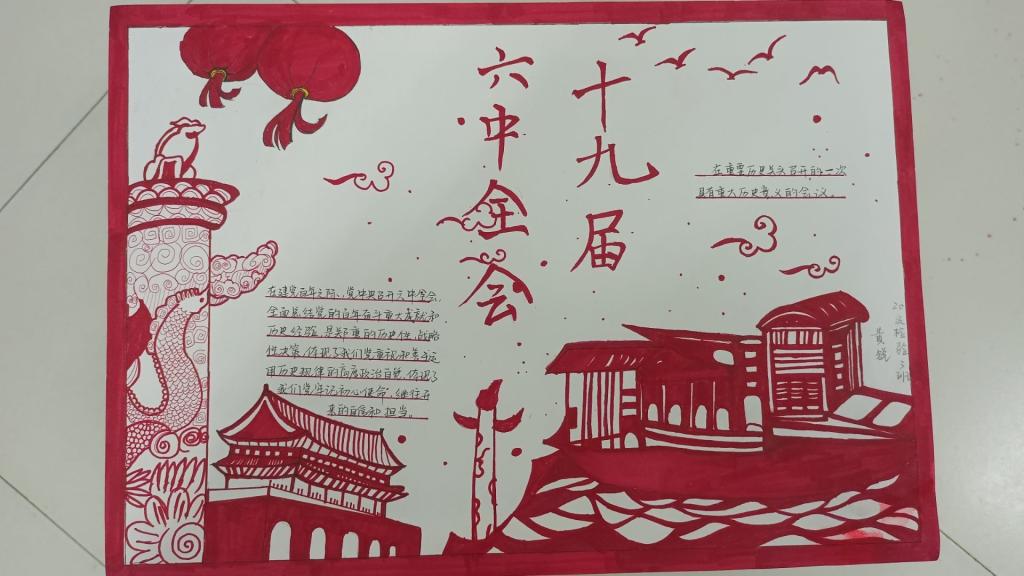 十九届
六中全会
在重要历史关头召开的一次
具有重大历史意义的会议。
在建党百年之际,党中央召开六中全会,
全面总结党的百年奋斗重大成就和
历史经验,是郑重的历史性、战略
性决策,体现了我们党重视和善于运
用历史规律的高度政治自觉,体现了
我们党牢记初心使命、继往开
来的自信和担当。
20医检验3班
黄钱